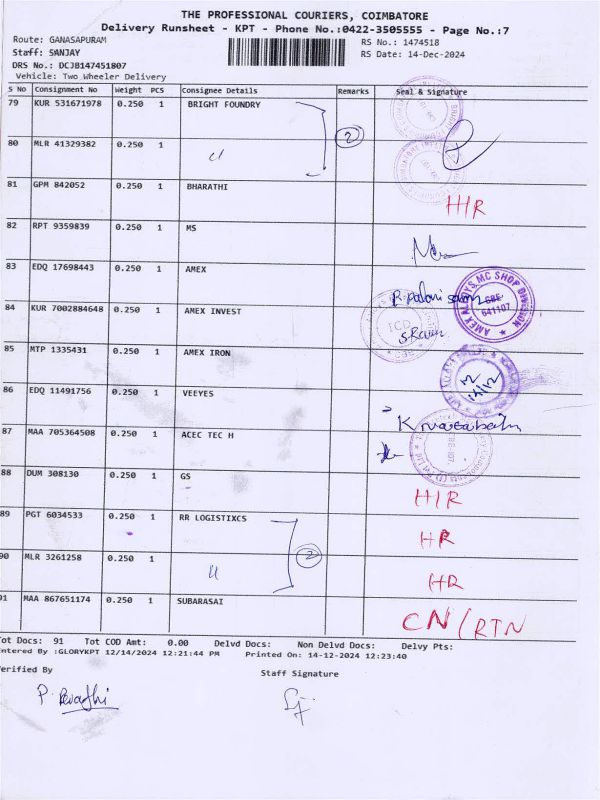 THE PROFESSIONAL COURIERS, COIMBATORE
Delivery Runsheet - KPT - Phone No.:0422-3505555 - Page No.:7
Route: GANASAPURAM
RS No.: 1474518
Staff: SANJAY
RS Date: 14-Dec-2024
DRS No.: DCJB147451807
Vehicle: Two Wheeler Delivery
S No Consignment No Weight PCS Consignee Details Remarks Seal & Signature
79 KUR 531671978 0.250 1 BRIGHT FOUNDRY
2
80 MLR 41329382 0.250 1 "
81 GPM 842052 0.250 1 BHARATHI H/R
82 RPT 9359839 0.250 1 MS
83 EDQ 17698443 0.250 1 AMEX
AMEX ALLOYS MC SHOP DIVISION
641107
84 KUR 7002884648 0.250 1 AMEX INVEST
85 MTP 1335431 0.250 1 AMEX IRON
86 EDQ 11491756 0.250 1 VEEYES
87 MAA 705364508 0.250 1 ACEC TEC H
88 DUM 308130 0.250 1 GS H/R
89 PGT 6034533 0.250 1 RR LOGISTIXCS HR
2
90 MLR 3261258 0.250 1 " HR
91 MAA 867651174 0.250 1 SUBARASAI CN/RTN
Tot Docs: 91 Tot COD Amt: 0.00 Delvd Docs: Non Delvd Docs: Delvy Pts:
Entered By :GLORYKPT 12/14/2024 12:21:44 PM Printed On: 14-12-2024 12:23:40
Verified By
Staff Signature